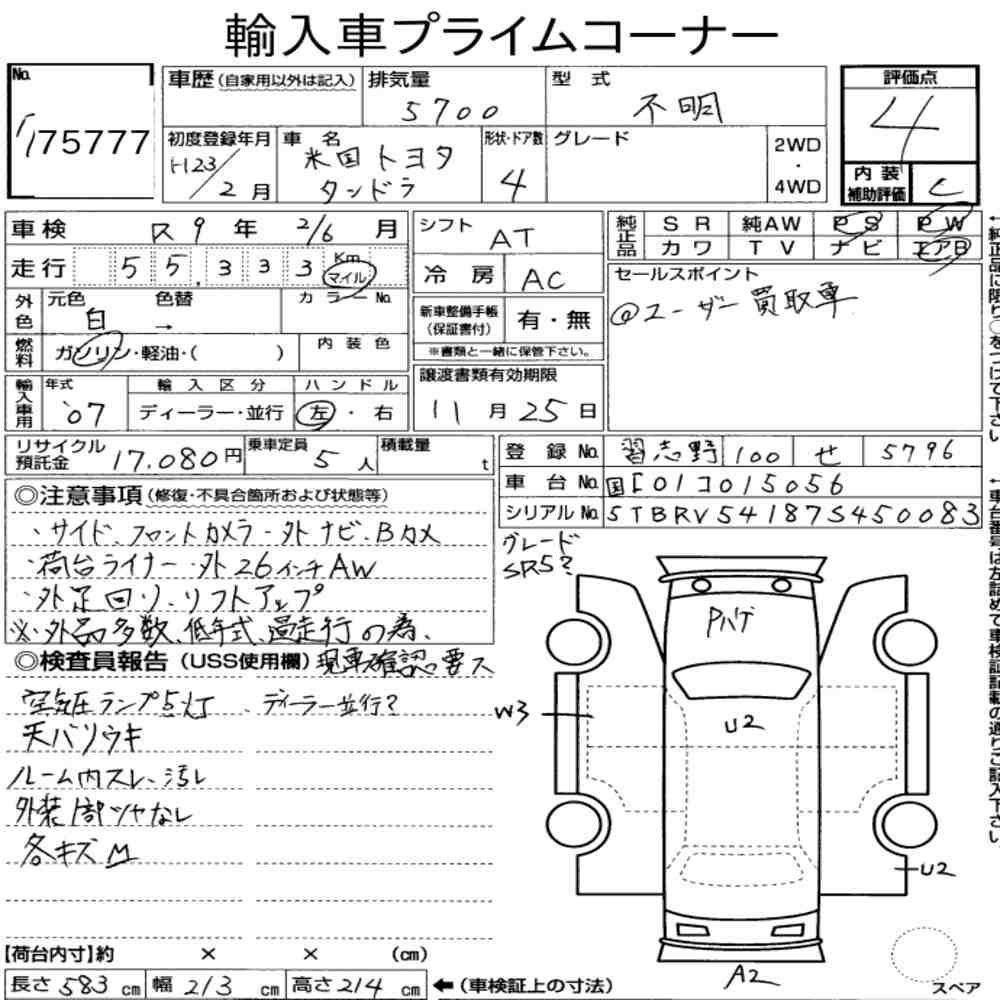 輸入車プライムコーナー
No. 75777
車歴(自家用以外は記入) 排気量 5700 型式 不明 評価点 4
初度登録年月 H23/2月 車名 米国トヨタ タンドラ 形状・ドア数 4 グレード 2WD・4WD 内装補助評価 C
車検 R9年2/6月 シフト AT 純正品 SR 純AW PS PW
カワ TV ナビ エアB
走行 55,333 Km マイル 冷房 AC セールスポイント
@ユーザー買取車
外色 元色 白 色替 → カラーNo. 新車整備手帳(保証書付) 有・無
※書類と一緒に保管下さい。
燃料 ガソリン・軽油・( ) 内装色
輸入車用 年式 '07 輸入区分 ディーラー・並行 ハンドル 左・右 譲渡書類有効期限 11月25日
リサイクル預託金 17.080円 乗車定員 5人 積載量 t
登録No. 習志野 100 せ 5796
車台No. 国[01]コ015056
シリアルNo. 5TBRV54187S450083
◎注意事項(修復・不具合箇所および状態等)
・サイド、フロントカメラ・外ナビ・Bカメ
・荷台ライナー・外26インチAW
・外足回り・リフトアップ
※外品多数、低年式、過走行の為、
現車確認要ス
◎検査員報告(USS使用欄)
空気圧ランプ点灯、ディーラー並行?
天バリウキ
ルーム内スレ、汚レ
外装1部ツヤなし
各キズM
グレード
SR5?
Pハゲ
W3
U2
U2
A2
スペア
【荷台内寸】約 × × (cm)
長さ583cm 幅213cm 高さ214cm ←(車検証上の寸法)
←純正品に限り○をつけて下さい
←車台番号は左詰めで車検証記載の通りご記入下さい。